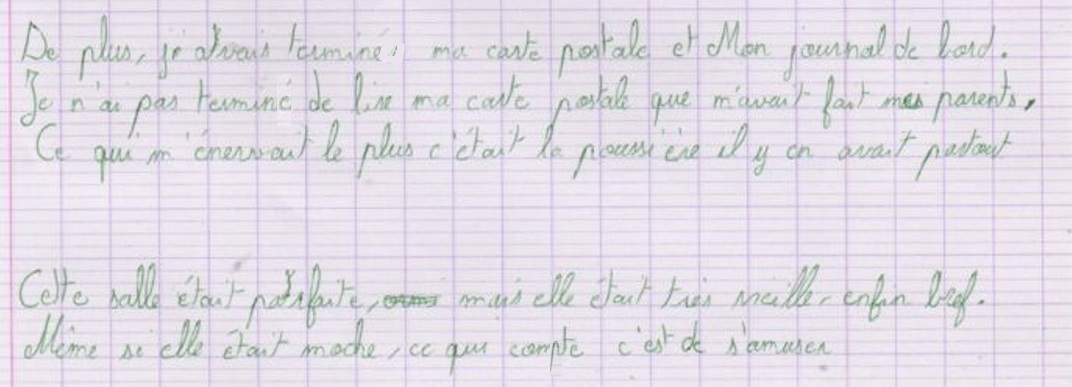 De plus, j'avais terminé ma carte postale et Mon journal de bord.
Je n'ai pas terminé de lire ma carte postale que m'avait fait mes parents,
Ce qui m'énervait le plus c'était la poussière il y en avait partout
Cette salle était parfaite, mais elle était très vieille, enfin bref.
Même si elle était moche, ce qui compte c'est de s'amuser